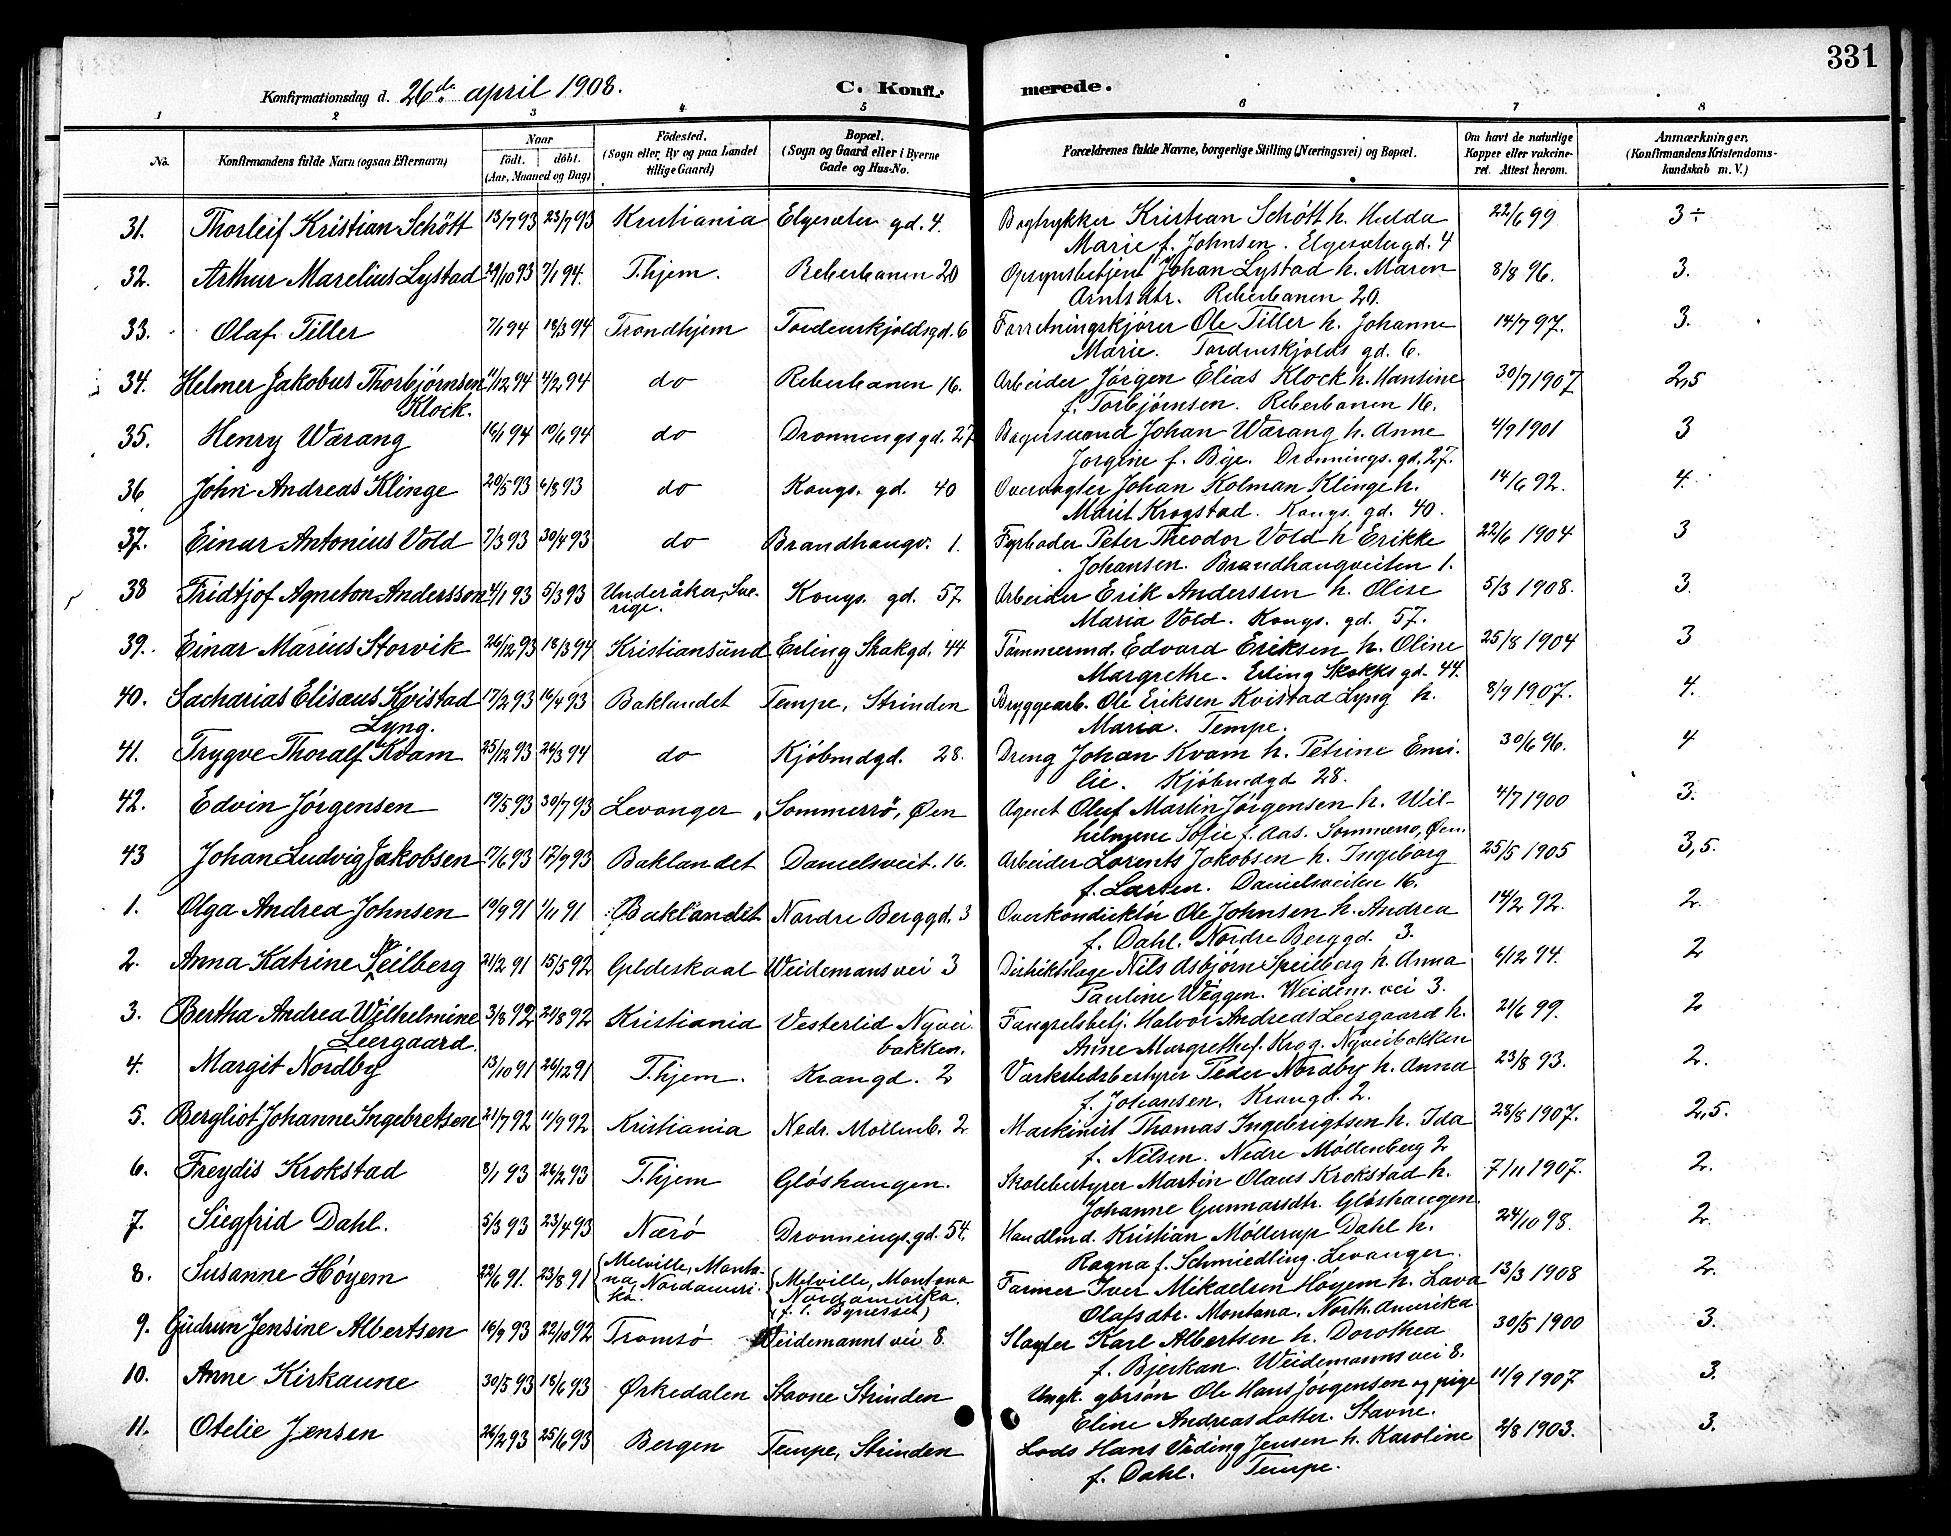 331
Konfirmationsdag d. 26de april 1908. C. Konfirmerede.
1 2 3 4 5 6 7 8
No. Konfirmandens fulde Navn (ogsaa Efternavn) Naar født. døbt. (Aar, Maaned og Dag) Fødested. (Sogn eller By og paa Landet tillige Gaard) Bopæl. (Sogn og Gaard eller i Byerne Gade og Hus-No. Forældrenes fulde Navne, borgerlige Stilling (Næringsvei) og Bopæl. Om havt de naturlige Kopper eller vakcineret. Attest herom. Anmærkninger, (Konfirmandens Kristendomskundskab m. V.)
31. Thorleif Kristian Schött 13/7 93 23/7 93 Kristiania Elgesæter gd. 4. Bogtrykker Kristian Schött h. Hulda 22/6 99 3÷
Marie f. Johnsen. Elgesæter gd. 4
32. Arthur Marelius Lystad 29/10 93 7/1 94. T.hjem. Reberbanen 20 Opsynsbetjent Johan Lystad h. Maren 8/8 96. 3.
Arntsdtr. Reberbanen 20.
33. Olaf Tiller 7/1 94 18/3 94 Trondhjem Tordenskjoldsgd. 6 Forretningskjører Ole Tiller h. Johanne 14/7 97. 3.
Marie. Tordenskjolds gd. 6.
34. Helmer Jakobus Thorbjørnsen 11/12 94 4/2 94 do Reberbanen 16. Arbeider Jørgen Elias Klock h. Hansine 30/7 1907 2,5
Klock. f. Torbjørnsen. Reberbanen 16.
35. Henry Warang 16/1 94 10/6 94 do Dronningsgd. 27 Bagersvend Johan Warang h. Anne 4/9 1901 3
Jorgine f. Bye. Dronnings. gd. 27.
36 John Andreas Klinge 20/5 93 6/8 93 do Kongs. gd. 40 Overvogter Johan Kolman Klinge h. 14/6 92. 4.
Marit Krogstad. Kongs. gd. 40.
37. Einar Antonius Vold 7/3 93 30/4 93 do Brandhaugv. 1. Fyrbøder Peter Theodor Vold h Erikke 22/6 1904 3
Johansen. Brandhaugveiten 1.
38 Fridtjof Agneton Andersson 4/1 93 5/3 93 Underåker, Sve- Kongs. gd. 57 Arbeider Erik Anderssen h. Olise 5/3 1908. 3.
rige. Maria Vold. Kongs. gd. 57.
39. Einar Marius Storvik 26/12 93 18/3 94 Kristiansund Erling Skakgd. 44 Tømmermd. Edvard Eriksen h. Oline 25/8 1904 3
Margrethe. Erling Skakks gd. 44.
40. Sacharias Elisæus Kvistad 17/2 93 16/4 93 Baklandet Tempe, Strinden Bryggearb. Ole Eriksen Kvistad Lyng h. 8/9 1907. 4.
Lyng. Maria. Tempe.
41. Trygve Thoralf Kvam 25/12 93 26/3 94 do Kjøbmdgd. 28. Dreng Johan Kvam h. Petrine Emi- 30/6 96. 4
lie. Kjøbmdgd 28.
42. Edvin Jørgensen 19/5 93 30/7 93 Levanger „Sommerrö", Øen Agent Oluf Martin Jørgensen h. Wil- 4/7 1900 3.
helmine Sofie f. Aas. Sommerro, Øen.
43 Johan Ludvig Jakobsen 17/6 93 17/9 93 Baklandet Danielsveit. 16. Arbeider Lorents Jakobsen h. Ingeborg 25/5 1905 3,5.
f. Larsen. Danielsveiten 16.
1. Olga Andrea Johnsen 19/9 91 1/11 91 Baklandet Nordre Berggd. 3 Overkonduktør Ole Johnsen h. Andrea 14/2 92. 2.
f. Dahl. Nordre Berggd. 3.
2. Anna Katrine Speilberg 21/2 91 15/5 92 Gildeskaal Weidemansvei 3 Distriktslæge Nils Asbjørn Speilberg h. Anna 6/12 94. 2
Pauline Wæggen. Weidem. vei 3.
3. Bertha Andrea Wilhelmine 3/8 92 21/8 92 Kristiania Vesterlid Nyvei- Fængselsbetj. Halvor Andreas Leergaard h. 21/6 99. 2
Leergaard. bakken. Anne Margrethe f. Krog. Nyveibakken
4. Margit Nordby 13/10 91 26/12 91 T.hjem. Krangd. 2 Værkstedsbestyrer Peder Nordby h. Anna 23/8 93. 2.
f. Johansen. Krangd. 2.
5. Bergliot Johanne Ingebretsen 21/7 92 11/9 92 Kristiania Nedr. Møllenb. 2 Maskinist Thomas Ingebrigtsen h. Ida 28/8 1907. 2,5.
f. Nilsen. Nedre Møllenberg 2
6. Freydis Krokstad 8/1 93 26/2 93 T.hjem Gløshaugen. Skolebestyrer Martin Olaus Krokstad h. 7/11 1907. 2.
Johanne Gunnarsdtr. Gløshaugen.
7. Siegfrid Dahl. 5/3 93 23/4 93 Nærö Dronnings. gd. 54. Handlmd. Kristian Møllerup Dahl h. 24/10 98. 2.
Ragna f. Schmiedling. Levanger.
8. Susanne Høyem 22/6 91. 23/8 91 Melville, Monta- Melville, Montana Farmer Iver Mikaelsen Høyem h. Lava 13/3 1908 2.
na, Nordameri- Nordamerika. Olafsdtr. Montana. North. Amerika
ka. (f. t. Bynesset)
9. Gudrun Jensine Albertsen 16/9 93 22/10 92 Tromsö Weidemanns vei 8. Slagter Karl Albertsen h. Dorothea 30/5 1900 3.
f. Bjerkan. Weidemanns vei 8.
10. Anne Kirkaune 30/5 93 18/6 93 Ørkedalen Stavne Strinden Ungk. gbrsøn Ole Hans Jørgensen og pige 11/9 1907 3.
Eline Andreasdatter. Stavne.
11. Otelie Jensen 26/2 93 25/6 93 Bergen Tempe, Strinden Lods Hans Viding Jensen h. Karoline 2/8 1903. 3.
f. Dahl. Tempe.